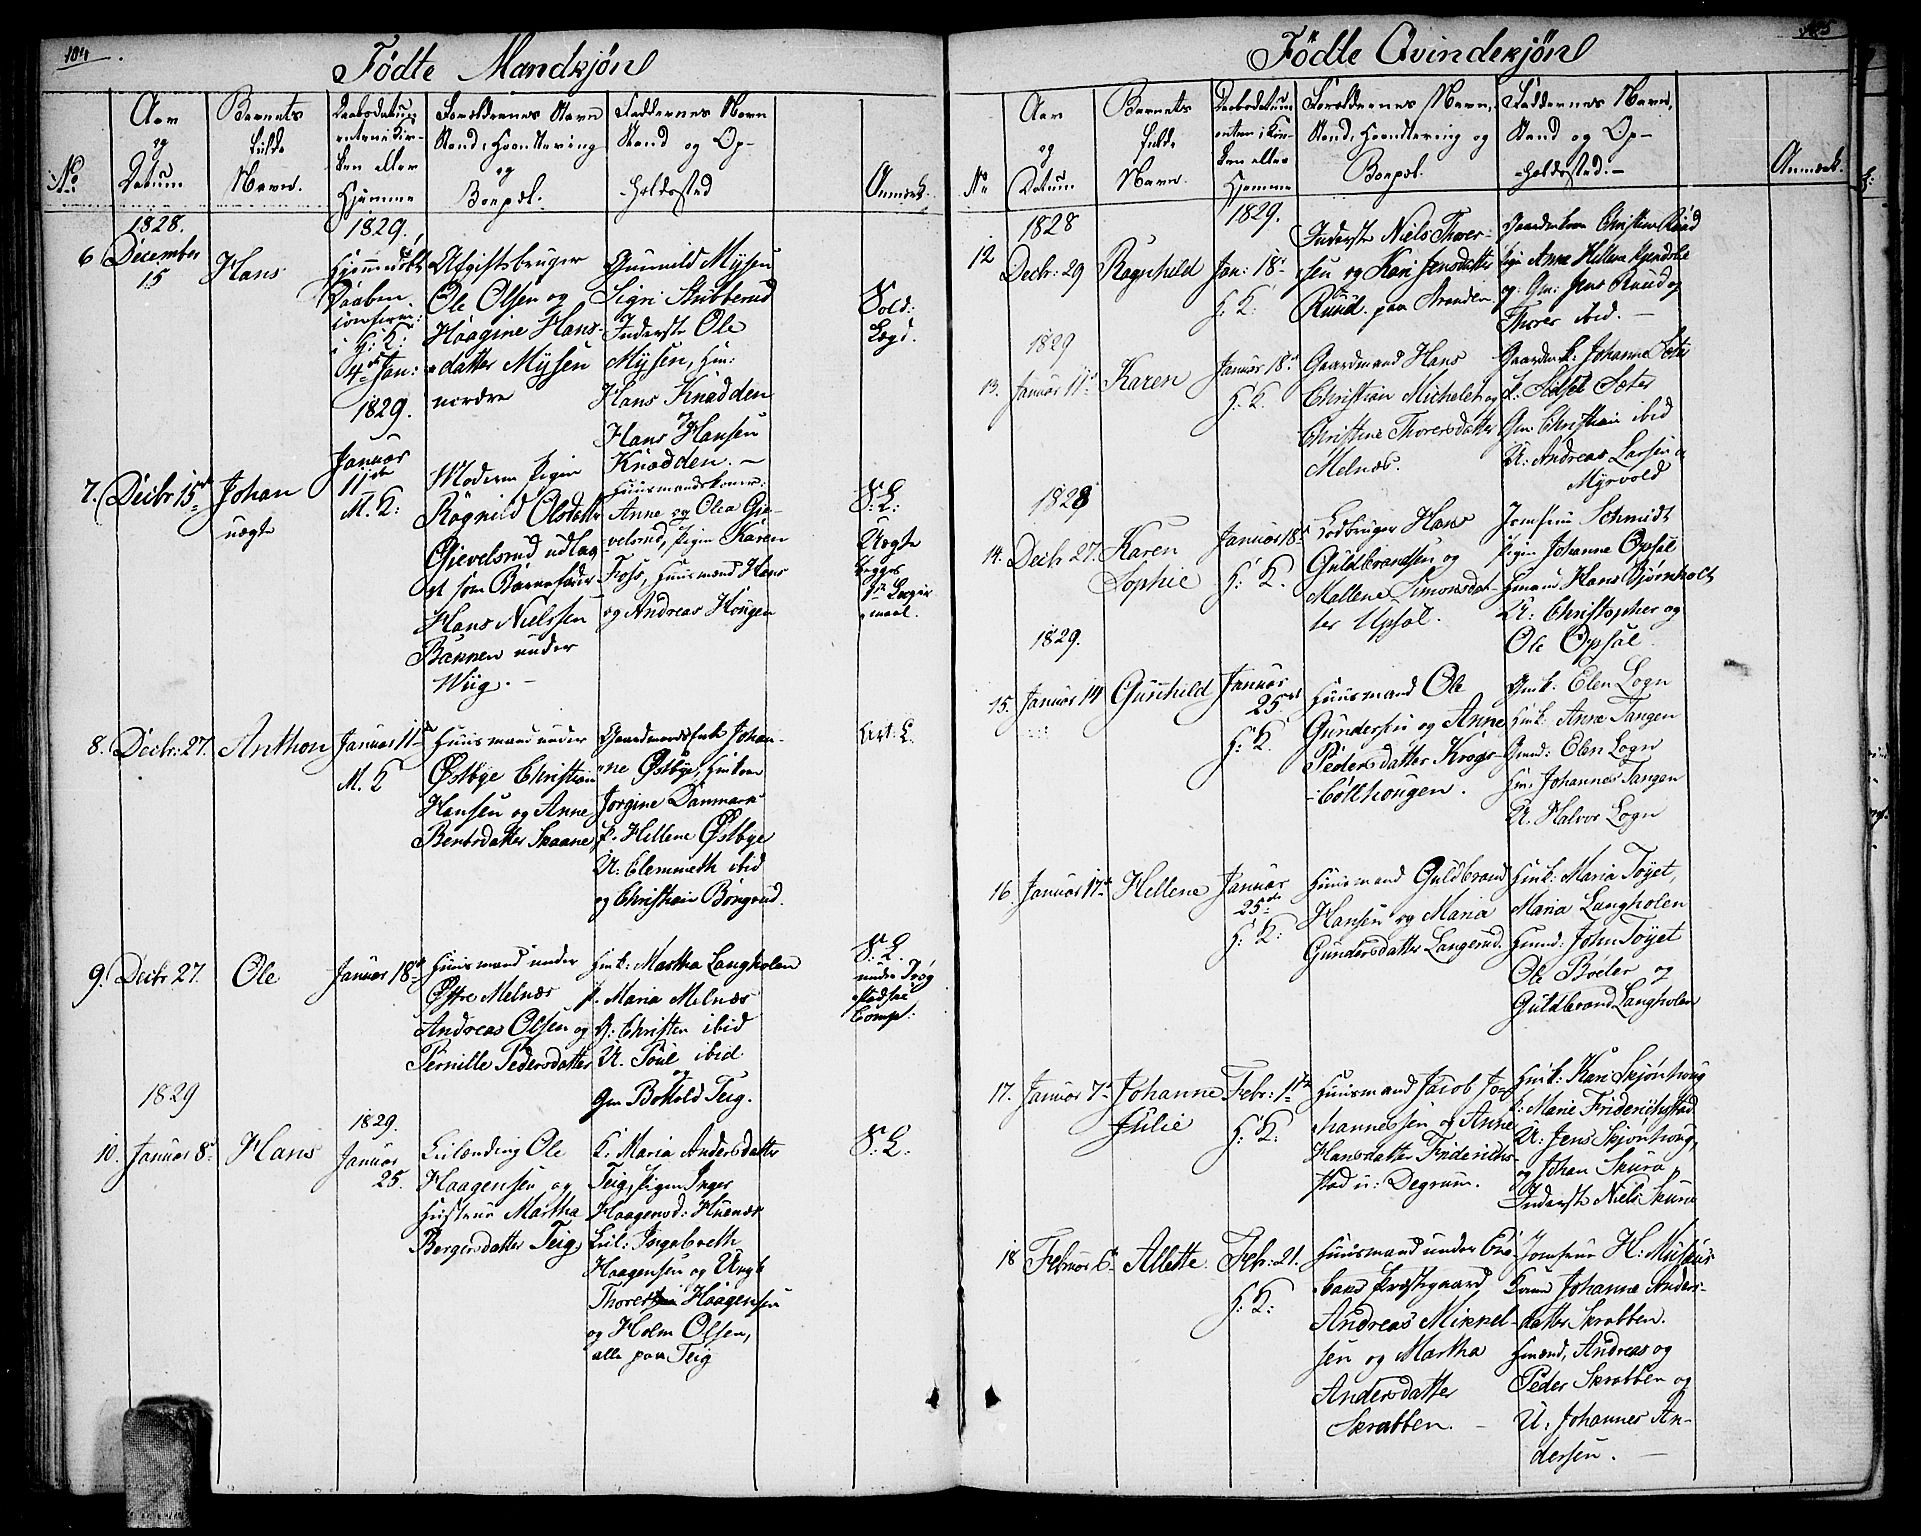 104.
Fødte Mandkjøn
No
Aar
og
Datum
Barnets
fulde
Navn.
Daabsdatum
enten i Kir-
ken eller
Hjemme
Forældrenes Navn
Stand, Haandtering
og
Boepæl.
Faddernes Navn
Stand og Op-
holdssted
Anmærk.
1828.
1829.
6
December
15
Hans
Hjemmedøbt
Daaben
confirm:
i H: K:
4de Jan:
1829.
Afgiftsbruger
Ole Olsen og
Haagine Hans-
datter Mysen
nordre
Gunnild Mysen
Sigri Stubberud
Inderste Ole
Mysen, Hm:
Hans Knadden
og
Hans Hansen
Knadden. –
Sold:
Lægd.
7.
Decbr 15de
Johan
uægte
Januar
11te
M. K:
Moderen Pigen
Ragnild Olsdatter
Gjevelsrud udlag
gt som Barnefader
Hans Nielssen
Bannen under
Wiig. –
Huusmandskoner:
Anne og Olea Gje-
velsrud, Pigen Karen
Foss, Huusmænd Hans
og Andreas Hougen
S: L:
Uægte
begges
1ste Leier
maal.
8.
Decbr: 27.
Anthon
Januar 11te
M. K
Huusmand under
Østbye Christian
Hansen og Anne
Bentsdatter Skaane
Gaardmandsfolk Johan-
ne Østbye, Hmkone
Jorgine Danmark
P. Hellene Østbye
U: Clemmeth ibid
og Christian Bøngrud.
9.
Decbr 27.
Ole
Januar 18de
Huusmand under
Østre Melnæs
Andreas Olsen og
Pernille Pedersdatter
Hmk: Martha Langholen
P. Maria Melnæs
G: Christen ibid
U. Poul ibid.
og
Gm Botold Teig.
S: L.
under Trøg
stadske
Comp:
1829
1829.
10.
Januar 8de
Hans
Januar
25.
Leilænding Ole
Haagensen og
Hustrue Martha
Borgersdatter Teig
K. Maria Andersdatter
Teig, Pigen Inger
Haagensd: Huenæs
Leil: Ingebreth
Haagensen og Ungk
Thorer Haagensen
og Holm Olsen,
alle paa Teig
S: L:
105
Fødte Qvindekjøn
No
Aar
og
Datum
Barnets
fulde
Navn.
Daabsdatum
enten i Kir-
ken eller
Hjemme
Forældrenes Navn,
Stand, Haandtering og
Boepæl.
Faddernes Navn,
Stand og Op-
holdssted. –
Anmærk.
1828
1829.
12
Decbr: 29
Ragnhild
Jan: 18de
H: K:
Inderste Niels Thorer-
sen og Kari Jensdatter
Ruud paa Aranden
Gaardmkone Christine Ruud
Pige Anne Hellene
og Gm: Jens Ruud og
Thorer ibid. –
1829
13.
Januar 11te
Karen
Januar 18de
H: K.
Gaardmand Hans
Christian Michelet og
Christine Thorersdatter
Melnæs.
Gaardmk: Johanne Sæter
P: Sidsel Sæter
Gm: Christian ibid
U: Andreas Larsen
Myrvold
1828
14.
Decbr 27.
Karen
Sophie
Januar 18de
H: K.
Lodbruger Hans
Guldbrandsen og
Mallene Simonsdat-
ter Upsal.
Jomfrue Schmidt
Pigen Johanne Opsal
Hmand Hans Bjørnholt
U: Christopher og
Ole Opsal.
1829.
15.
Januar 14
Gunnhild
Januar
25de
H: K.
Huusmand Ole
Gundersen og Anne
Pedersdatter Krogs-
bøllhougen.
Gmk: Elen Logn
Hmk: Anne Tangen
Gmd: Elen Logn
Hm: Johannes Tangen
U. Halvor Logn
16.
Januar 17de
Hellene
Januar
25de
H: K:
Huusmand Guldbrand
Hansen og Maria
Gundersdatter Langerud.
Hmk: Maria Tøyet,
Maria Langholen
Hmd: John Tøyet
Ole Bøeler og
Guldbrand Langholen
17.
Januar 7de
Johanne
Julie
Febr: 1ste
H: K:
Huusmand Jacob Jo-
hannessen og Anne
Hansdatter Friderichs-
stad u: Degrum.
Hmk: Kari Skjønhoug
P: Marie Friderichstad
U: Jens Skjønhoug,
og Johan Skura,
Inderste Niels Skura
18
Februar 6te
Allette.
Febr: 21.
H: K:
Huusmand under Eids-
bergs Præstegaard
Andreas Mikkel-
sen og Martha
Andersdatter
Skrabben. –
Jomfrue H: Musæus
Kone Johanne Anders-
datter Skrabben.
Hmænd, Andreas og
Peder Skrabben og
U. Johannes An-
dersen. –